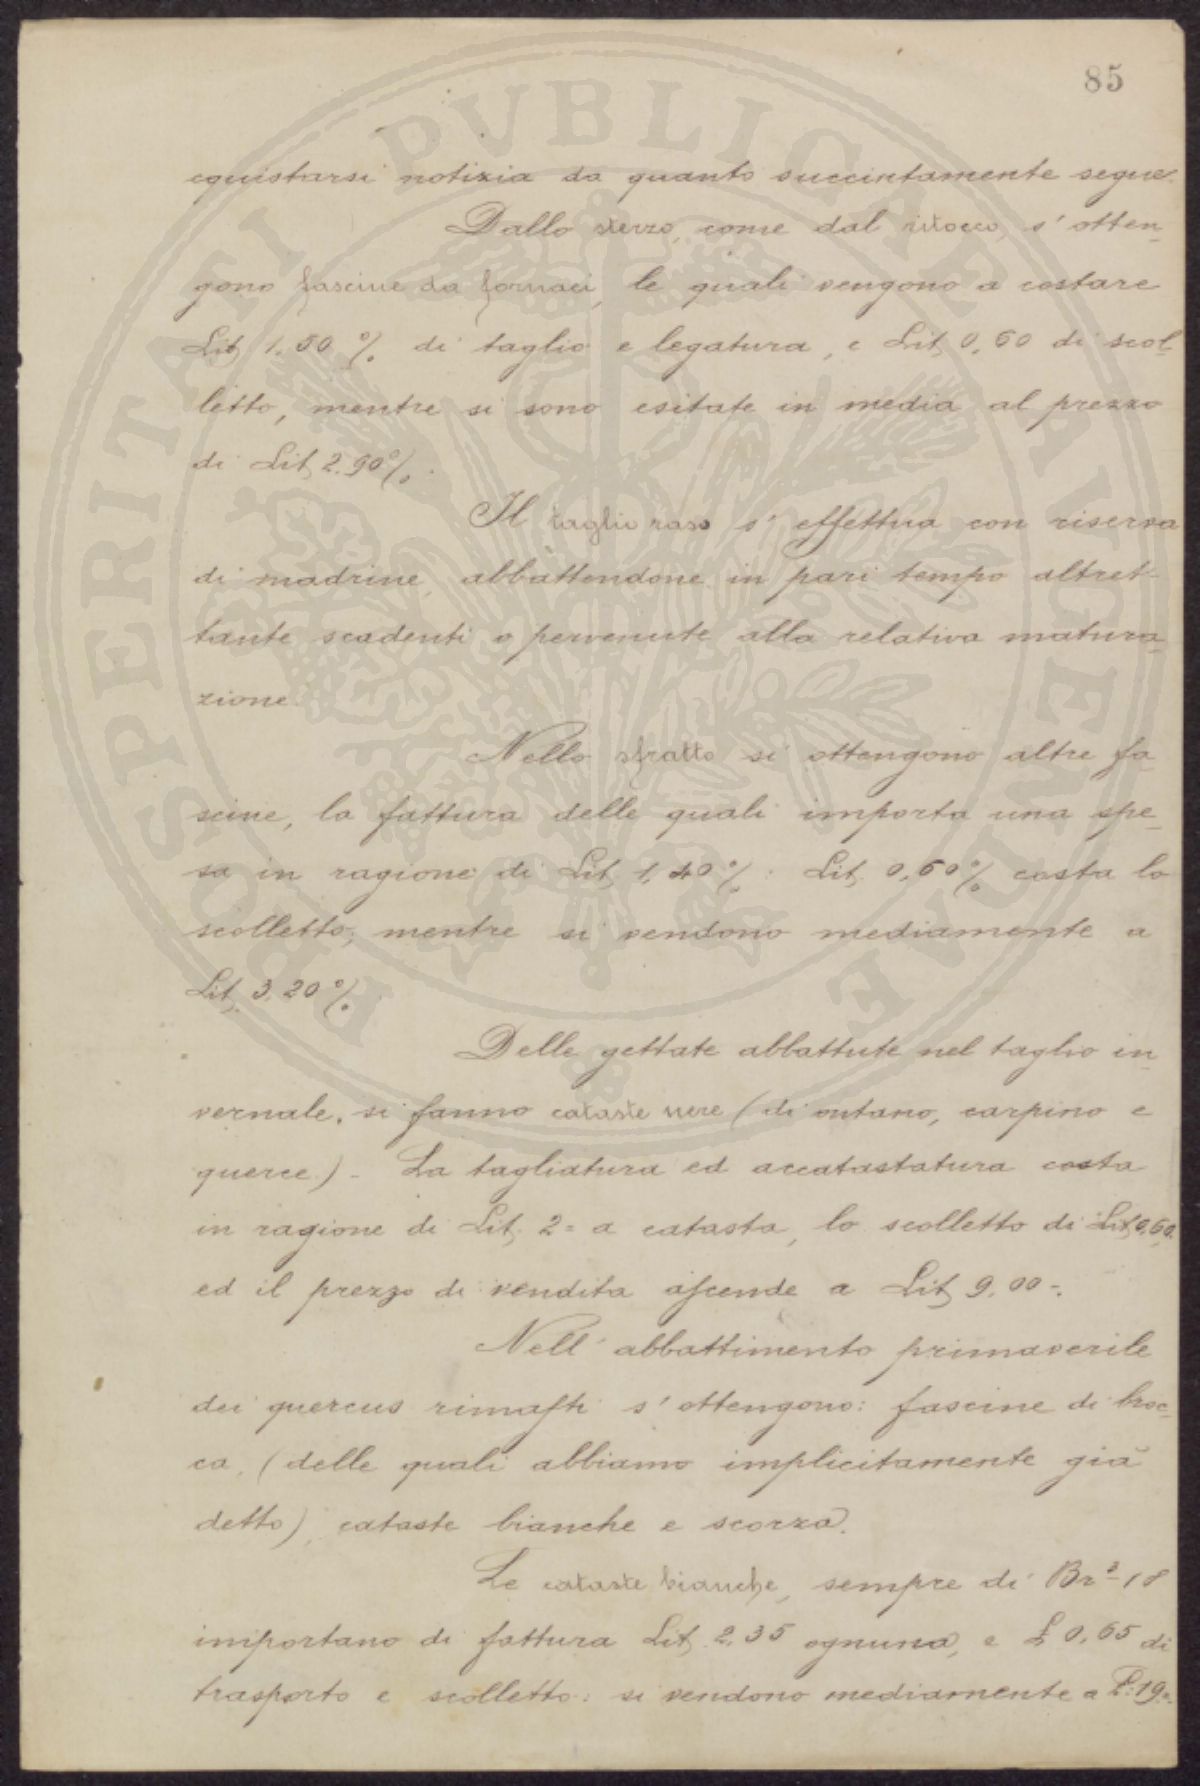 85
cquistarsi notizia da quanto succintamente segue.
Dallo sterzo, come dal ritocco, s'otten-
gono fascine da fornaci, le quali vengono a costare
Lit. 1.50 % di taglio e legatura, e Lit. 0.60 di scol-
letto, mentre si sono esitate in media al prezzo
di Lit. 2.90 %.
Il taglio raso s'effettua con riserva
di madrine, abbattendone in pari tempo altret-
tante scadenti o pervenute alla relativa matura-
zione.
Nello sfratto si ottengono altre fa-
scine, la fattura delle quali importa una spe-
sa in ragione di Lit. 1.40 %: Lit. 0.60 % costa lo
scolletto, mentre si vendono mediamente a
Lit. 3.20 %.
Delle gettate abbattute nel taglio in-
vernale, si fanno cataste nere (di ontano, carpino e
querce.) - La tagliatura ed accatastatura costa
in ragione di Lit. 2= a catasta, lo scolletto di Lit. 0.60.
ed il prezzo di vendita ascende a Lit. 9.00-.
Nell'abbattimento primaverile
dei quercus rimasti s'ottengono: fascine di broc-
ca, (delle quali abbiamo implicitamente già
detto), cataste bianche e scorza.
Le cataste bianche, sempre di Br.³ 18
importano di fattura Lit. 2.35 ognuna, e £ 0.65 di
trasporto e scolletto: si vendono mediamente a £. 19.=
PROSPERITATI PVBLICAE AVGENDAE